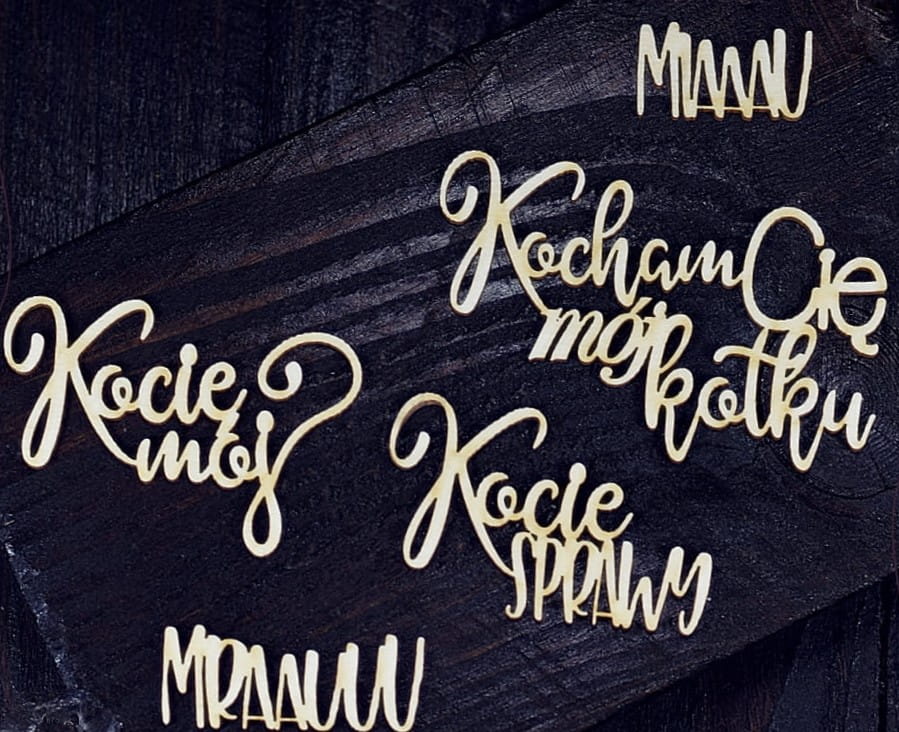 MIAAAU
Kocham Cię
mój kotku
Kocie
mój
Kocie
SPRAWY
MRAAUUU